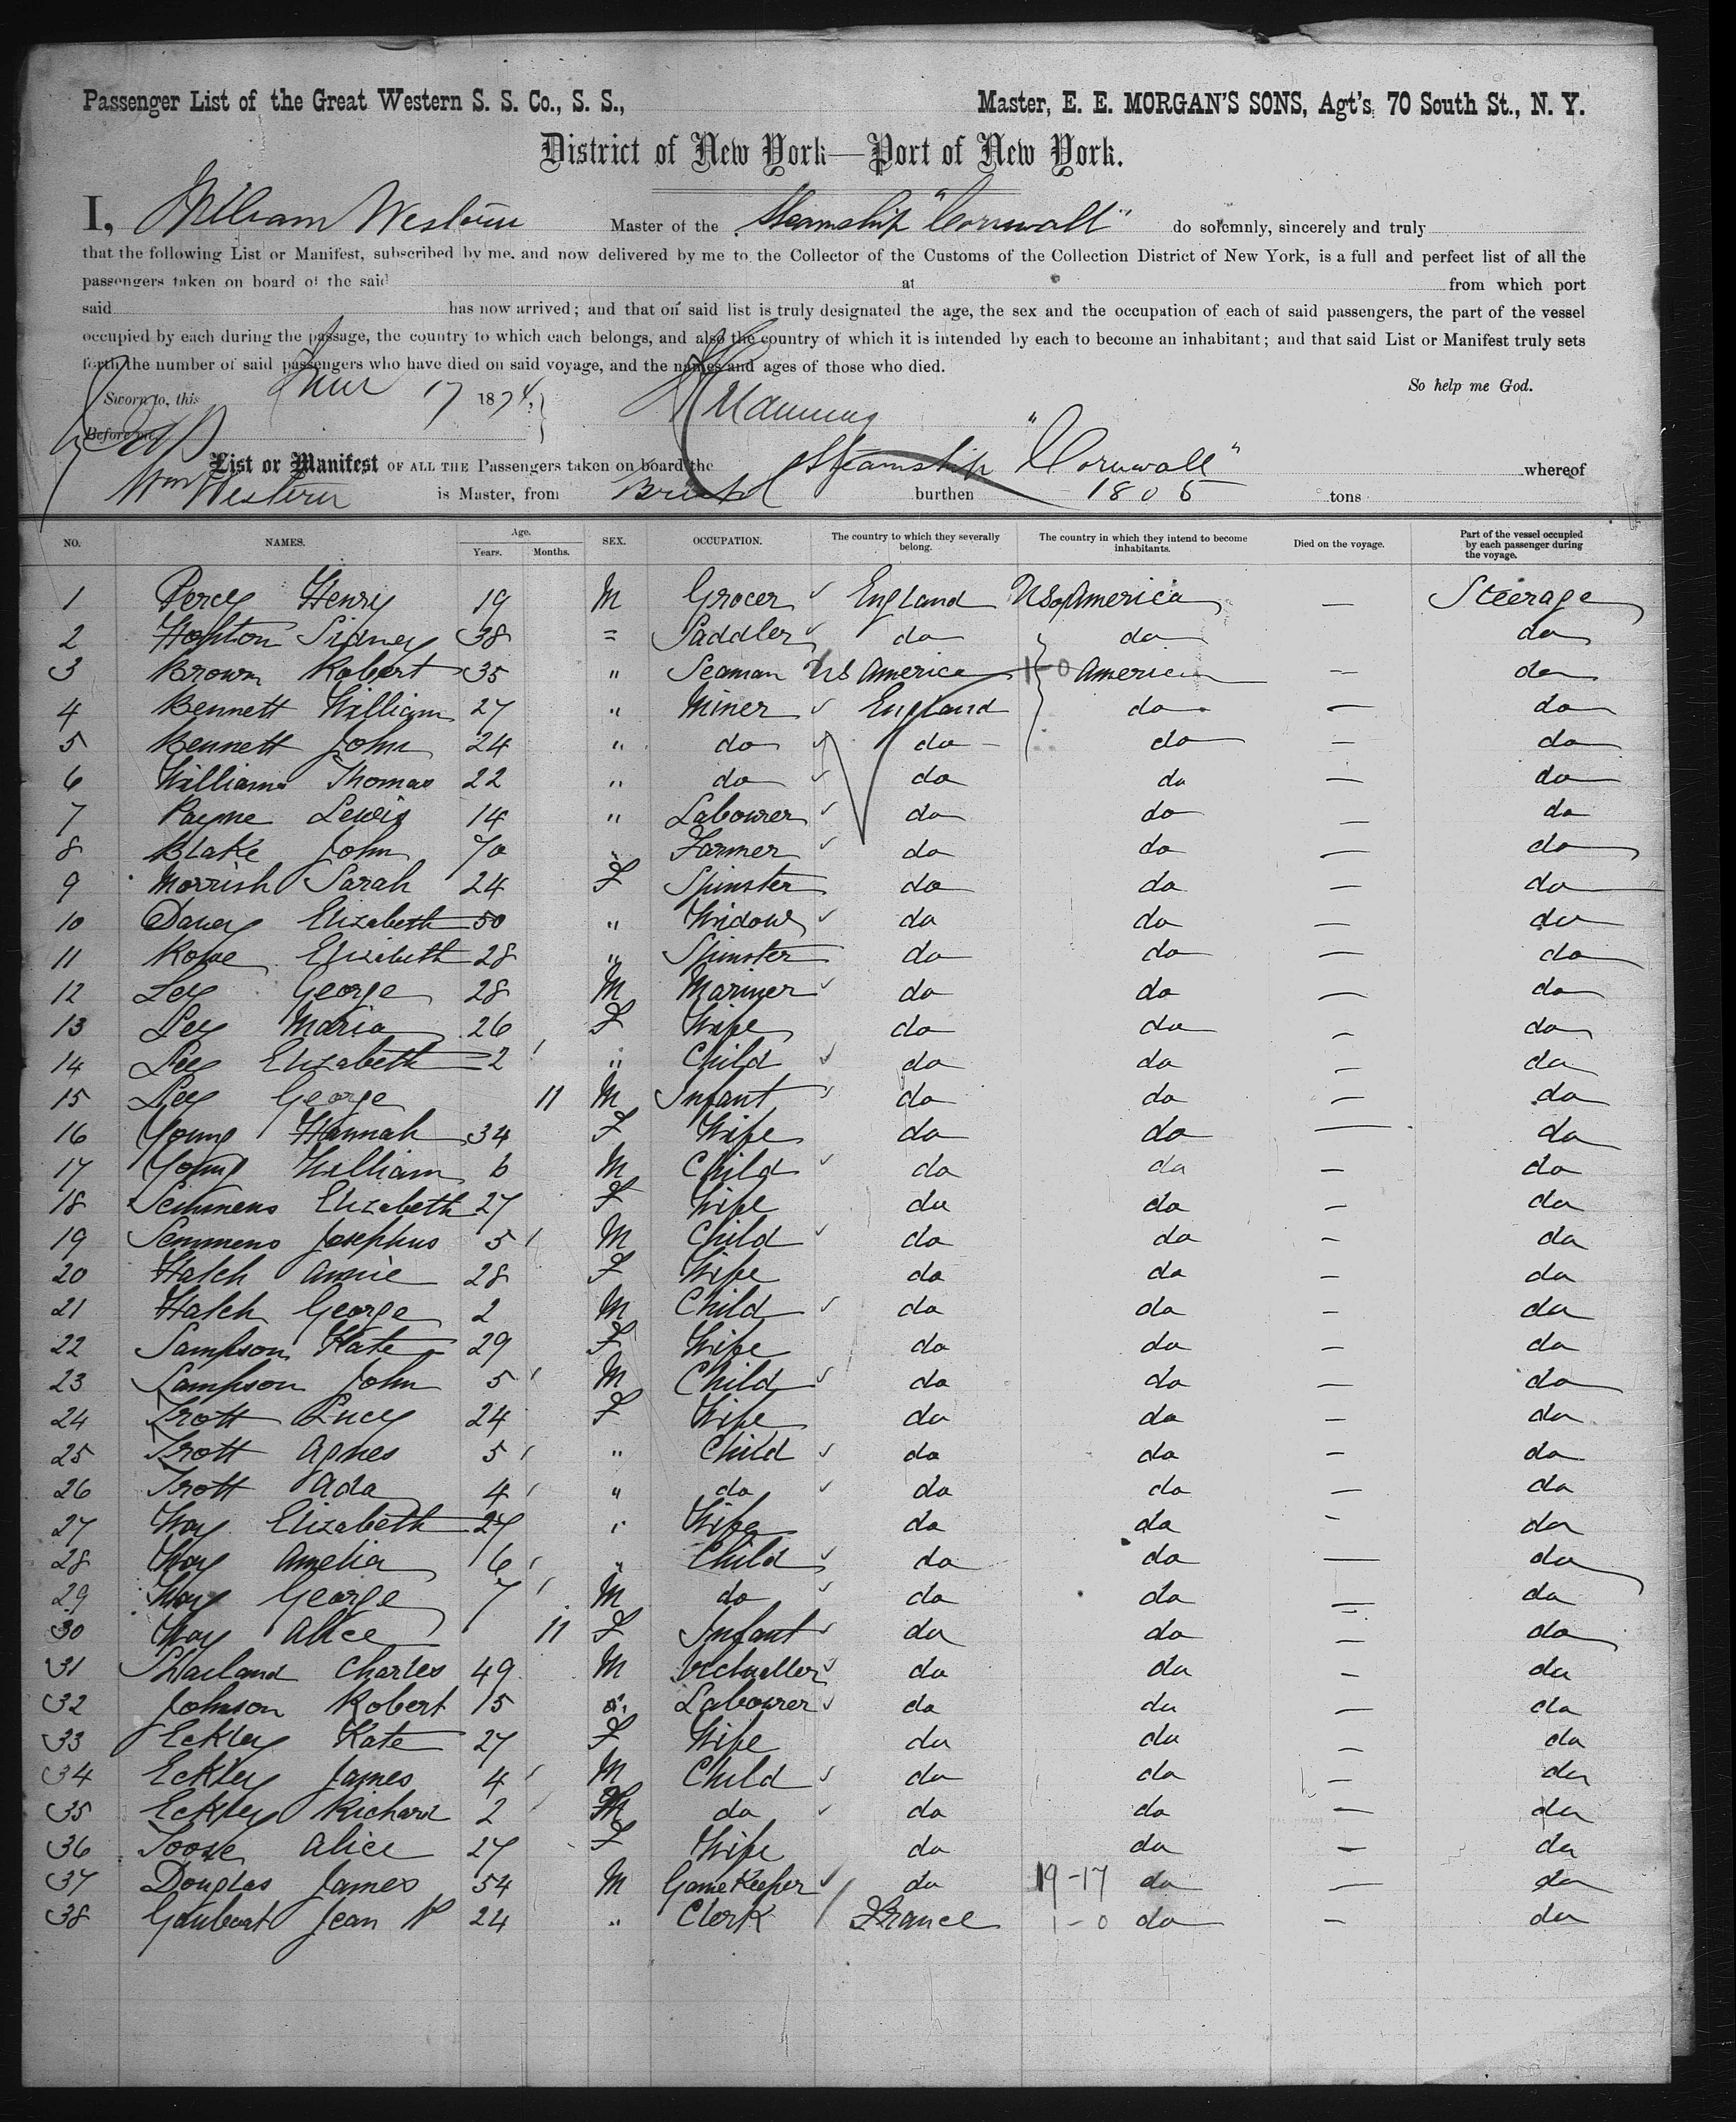 Passenger List of the Great Western S. S. Co., S. S., Master, E. E. MORGAN'S SONS, Agt's, 70 South St., N. Y.
District of New York—Port of New York.
I, William Western Master of the Steamship "Cornwall" do solemnly, sincerely and truly
that the following List or Manifest, subscribed by me, and now delivered by me to the Collector of the Customs of the Collection District of New York, is a full and perfect list of all the
passengers taken on board of the said at from which port
said has now arrived; and that on said list is truly designated the age, the sex and the occupation of each of said passengers, the part of the vessel
occupied by each during the passage, the country to which each belongs, and also the country of which it is intended by each to become an inhabitant; and that said List or Manifest truly sets
forth the number of said passengers who have died on said voyage, and the names and ages of those who died.
So help me God.
Sworn to, this June 17 1874, Manning
Before me,
List or Manifest OF ALL THE Passengers taken on board the Steamship "Cornwall" whereof
Wm Western is Master, from Bristol burthen 1805 tons
NO. NAMES. Age. Years. Months. SEX. OCCUPATION. The country to which they severally belong. The country in which they intend to become inhabitants. Died on the voyage. Part of the vessel occupied by each passenger during the voyage.
1 Percy Henry 19 M Grocer England US of America — Steerage
2 Hopton Sidney 38 = Saddler do do do
3 Brown Robert 35 " Seaman US America 1-0 America — do
4 Bennett William 27 " Miner England do — do
5 Bennett John 24 " do do do — do
6 Williams Thomas 22 " do do do — do
7 Payne Lewis 14 " Labourer do do — do
8 Blake John 70 " Farmer do do — do
9 Morrish Sarah 24 F Spinster do do — do
10 Davey Elizabeth 50 " Widow do do — do
11 Rowe Elizibeth 28 " Spinster do do — do
12 Ley George 28 M Mariner do do — do
13 Ley Maria 26 F Wife do do — do
14 Ley Elizabeth 2 " Child do do — do
15 Ley George 11 M Infant do do — do
16 Young Hannah 34 F Wife do do — do
17 Young William 6 M Child do do — do
18 Semmens Elizabeth 27 F Wife do do — do
19 Semmens Josephus 5 M Child do do — do
20 Hatch Annie 28 F Wife do do — do
21 Hatch George 2 M Child do do — do
22 Sampson Kate 29 F Wife do do — do
23 Sampson John 5 M Child do do — do
24 Trott Lucy 24 F Wife do do — do
25 Trott Agnes 5 " Child do do — do
26 Trott Ada 4 " do do do — do
27 Way Elizabeth 27 " Wife do do — do
28 Way Amelia 6 " Child do do — do
29 Way George 7 M do do do — do
30 Way Alice 11 F Infant do do — do
31 Charles 49 M Victualler do do — do
32 Johnson Robert 15 " Labourer do do — do
33 Eckley Kate 27 F Wife do do — do
34 Eckley James 4 M Child do do — do
35 Eckley Richard 2 M do do do — do
36 Toose Alice 27 F Wife do do — do
37 Douglas James 54 M GameKeeper do 19-17 do — do
38 Jean 24 " Clerk France 1-0 do — do